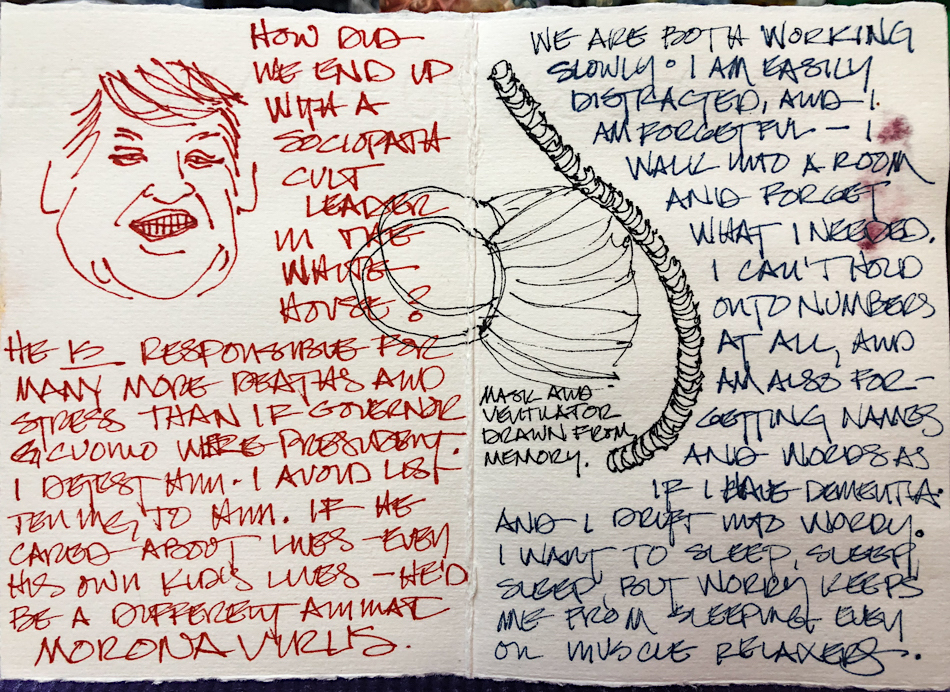 HOW DID
WE END UP
WITH A
SOCIOPATH
CULT
LEADER
IN THE
WHITE
HOUSE?
HE IS RESPONSIBLE FOR
MANY MORE DEATHS AND
STRESS THAN IF GOVERNOR
CUOMO WERE PRESIDENT.
I DETEST HIM. I AVOID LIS-
TENING TO HIM. IF HE
CARED ABOUT LIVES - EVEN
HIS OWN KID'S LIVES - HE'D
BE A DIFFERENT ANIMAL
MORONAVIRUS.
WE ARE BOTH WORKING
SLOWLY. I AM EASILY
DISTRACTED, AND I
AM FORGETFUL - I
WALK INTO A ROOM
AND FORGET
WHAT I NEEDED.
I CAN'T HOLD
ONTO NUMBERS
AT ALL, AND
AM ALSO FOR-
GETTING NAMES
AND WORDS AS
IF I HAVE DEMENTIA.
AND I DRIFT INTO WORRY.
I WANT TO SLEEP, SLEEP,
SLEEP, BUT WORRY KEEPS
ME FROM SLEEPING EVEN
ON MUSCLE RELAXERS.
MASK AND
VENTILATOR
DRAWN FROM
MEMORY.